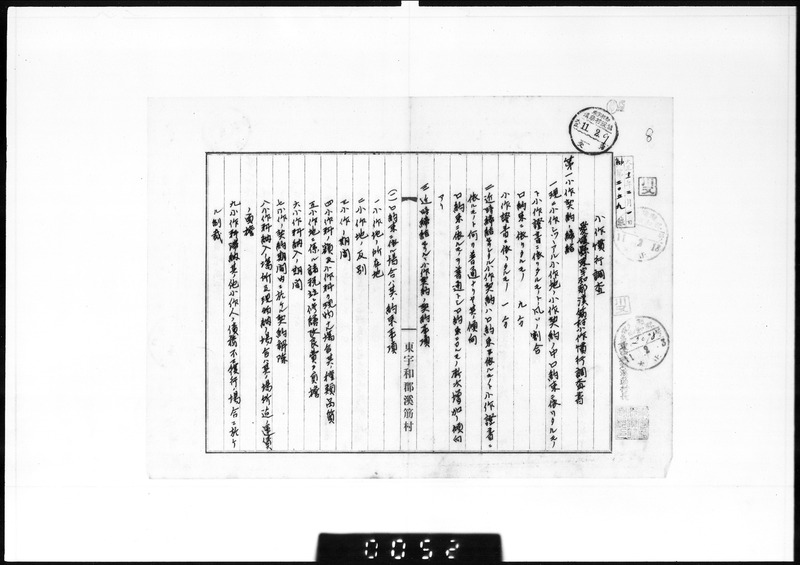 小作慣行調査
愛媛縣東宇和郡溪筋村小作慣行調査書
第一小作契約ノ締結
一現ニ小作セシメツヽアル小作地ノ小作契約ノ中口約束ニ依リタルモノ
ト小作證書ニ依リタルモノトノ割合
口約束ニ依リタルモノ 九分
小作證書ニ依リタルモノ 一分
二近時締結セラルヽ小作契約ハ口約束ニ依ルモノト小作證書ニ
依ルモノト何レカ普通ナリヤ其ノ傾向
口約束ニ依ルモノ普通ニシテ口約束ニヨルモノ漸次増加ノ傾向
アリ
三近時締結セラルヽ小作契約ノ契約事項
(一)口約束ニ依ル場合ハ其ノ約束事項
一小作地ノ所在地
二小作地ノ反別
三小作ノ期間
四小作料ノ額及小作料ヲ現物トスル場合其ノ種類品質
五小作地ニ係ル諸税並ニ修繕改良費ノ負擔
六小作料納入ノ期間
七小作ノ契約期間内ニ於ケル契約解除
八小作料納入ノ場所且現物納ノ場合ハ其ノ場所迄ノ運賃
ノ負擔
九小作料滞納其ノ他小作人ノ債務不履行場合ニ於ケ
ル制裁
東宇和郡溪筋村
8
11.2.9
0052